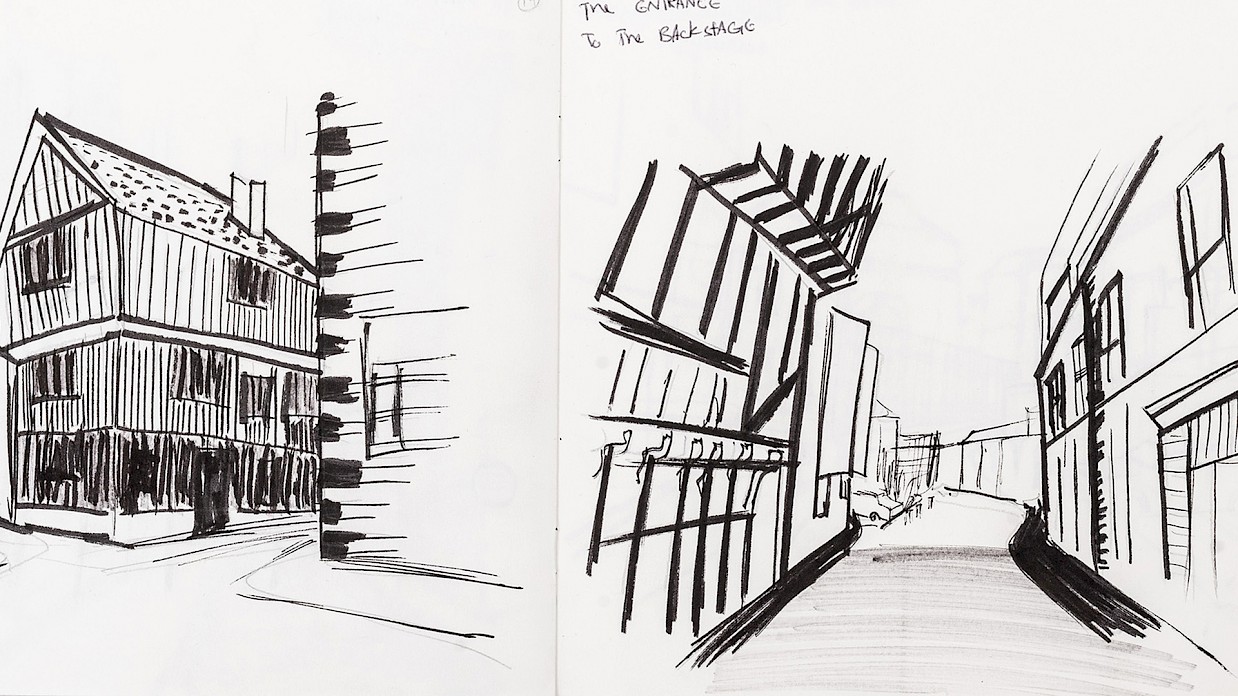 The ENTRANCE
To The BACKSTAGE